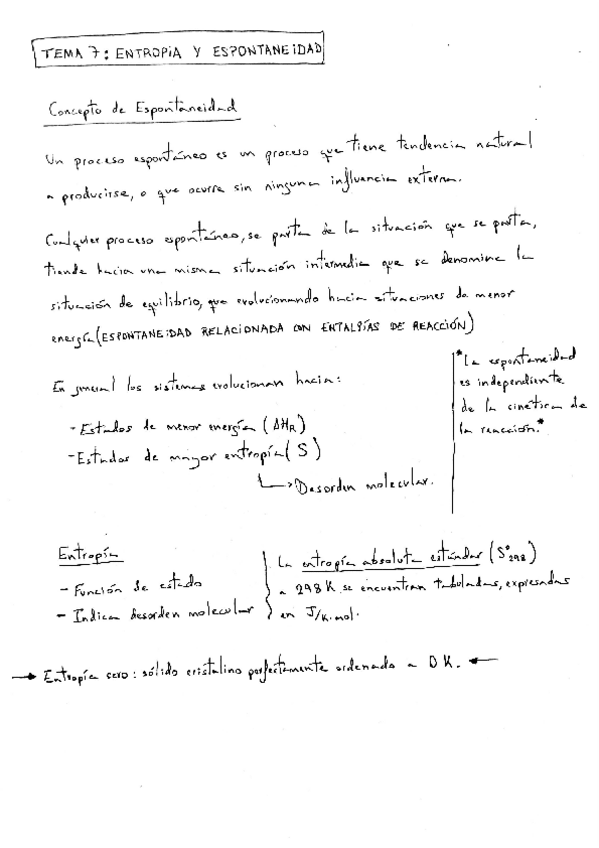 TEMA 7: ENTROPIA Y ESPONTANEIDAD
Concepto de Espontaneidad
Un proceso espontáneo es un proceso que tiene tendencia natural
a producirse, o que ocurre sin ninguna influencia externa.
Cualquier proceso espontáneo, se parta de la situación que se parta,
tiende hacia una misma situación intermedia que se denomina la
situación de equilibrio, que evolucionando hacia situaciones de menor
energía (ESPONTANEIDAD RELACIONADA CON ENTALPÍAS DE REACCIÓN)
En general los sistemas evolucionan hacia:
- Estados de menor energía (ΔHR)
- Estados de mayor entropía (S)
↳ Desorden molecular.
*La espontaneidad
es independiente
de la cinética de
la reacción.*
Entropía
- Función de estado
- Indica desorden molecular
La entropía absoluta estándar (S°298)
a 298 K se encuentran tabuladas, expresadas
en J/K·mol.
→ Entropía cero: sólido cristalino perfectamente ordenado a 0 K. ←